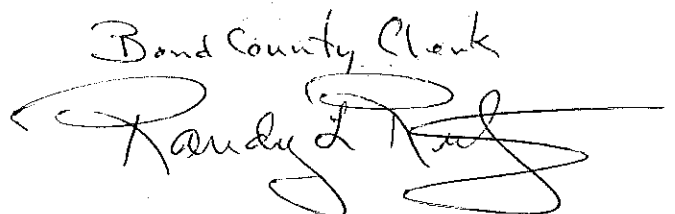 Bond County Clerk
Randy L